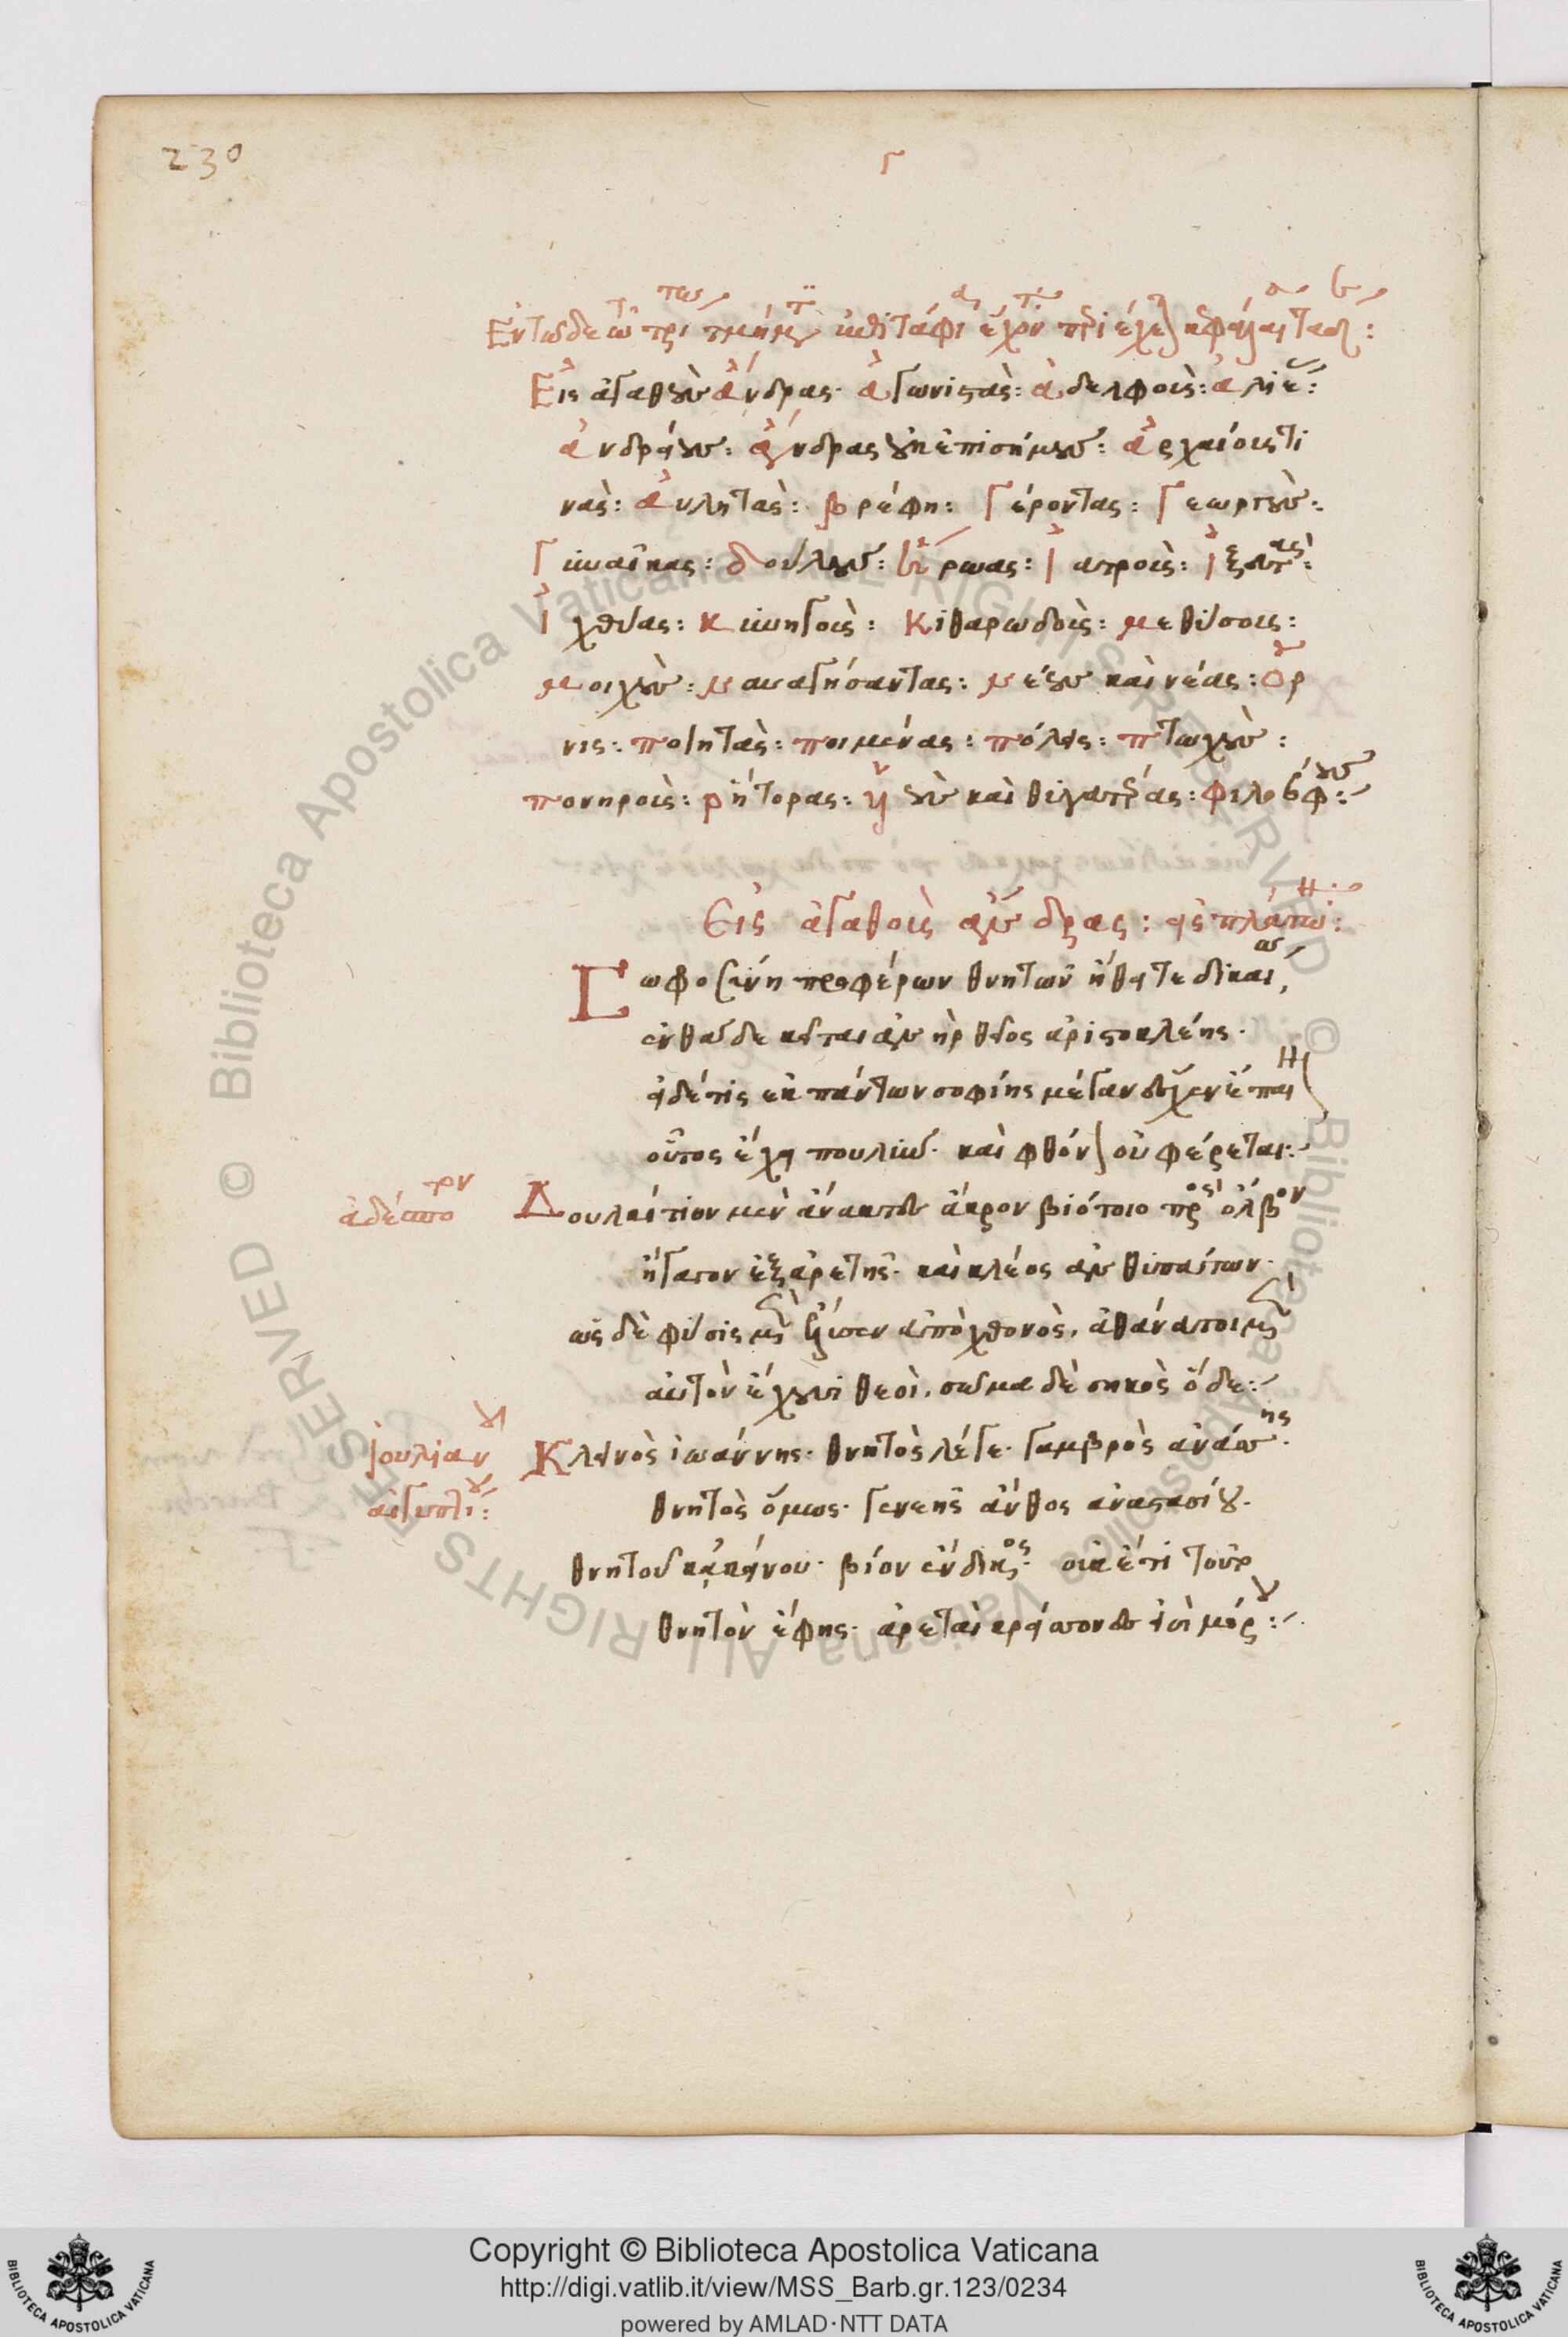 230
Γ
Ἐν τῷδε τῷ τρίτῳ τμήματι ἐπιτάφια ἔχοντι περιέχεται κεφάλαια ταῦτα:
Εἰς ἀγαθοὺς ἄνδρας· ἀγωνιστάς: ἀδελφοὺς: ἁλιεῖς:
ἀνδρείους: ἄνδρας οὐκ ἐπισήμους: ἀρχαίους τι
νὰς: αὐλητὰς: βρέφη: Γέροντας: Γεωργοὺς:
Γυναῖκας: δούλους: ἥρωας: ἰατροὺς: ἰξευτὰς:
ἰχθύας: κυνηγοὺς: κιθαρωδοὺς: μεθύσους:
μοιχοὺς: ναυαγήσαντας: νέους καὶ νέας: ὄρ
νις: ποιητὰς: ποιμένας: πόλεις: πτωχοὺς:
πονηροὺς: ῥήτορας: υἱοὺς καὶ θυγατέρας: φιλοσόφους:
Εἰς ἀγαθοὺς ἄνδρας: εἰς πλάτωνα:
Σωφροσύνη προφέρων θνητῶν ἤθει τε δικαίῳ,
ἐνθάδε κεῖται ἀνὴρ θεῖος ἀριστοκλέης·
εἰ δέ τις ἐκ πάντων σοφίης μέγαν ἔσχεν ἔπαινον
οὗτος ἔχει πουλύν· καὶ φθόνον οὐ φέρεται:
ἀδέσποτον
Δουλκίτιον μὲν ἄνακτες ἄκρον βιότοιο πρὸς ὄλβον
ἤγαγον ἐξ ἀρετῆς· καὶ κλέος ἀνθυπάτων·
ὡς δὲ φύσις μὲν ἔλυσεν ἀπὸ χθονὸς, ἀθάνατοι μὲν
αὐτὸν ἔχουσι θεοὶ, σῶμα δὲ σηκὸς ὅδε:
Ἰουλιανοῦ
αἰγυπτίου:
Κλεινὸς ἰωάννης· θνητὸς λέγε· γαμβρὸς ἀνάσσης·
θνητὸς ὅμως· γενεῆς ἄνθος ἀναστασίου·
θνητοῦ κἀκείνου· βίον ἔνδικος· οὐκέτι τοῦτο
θνητὸν ἔφης· ἀρεταὶ κρείσσονές εἰσι μόρου: